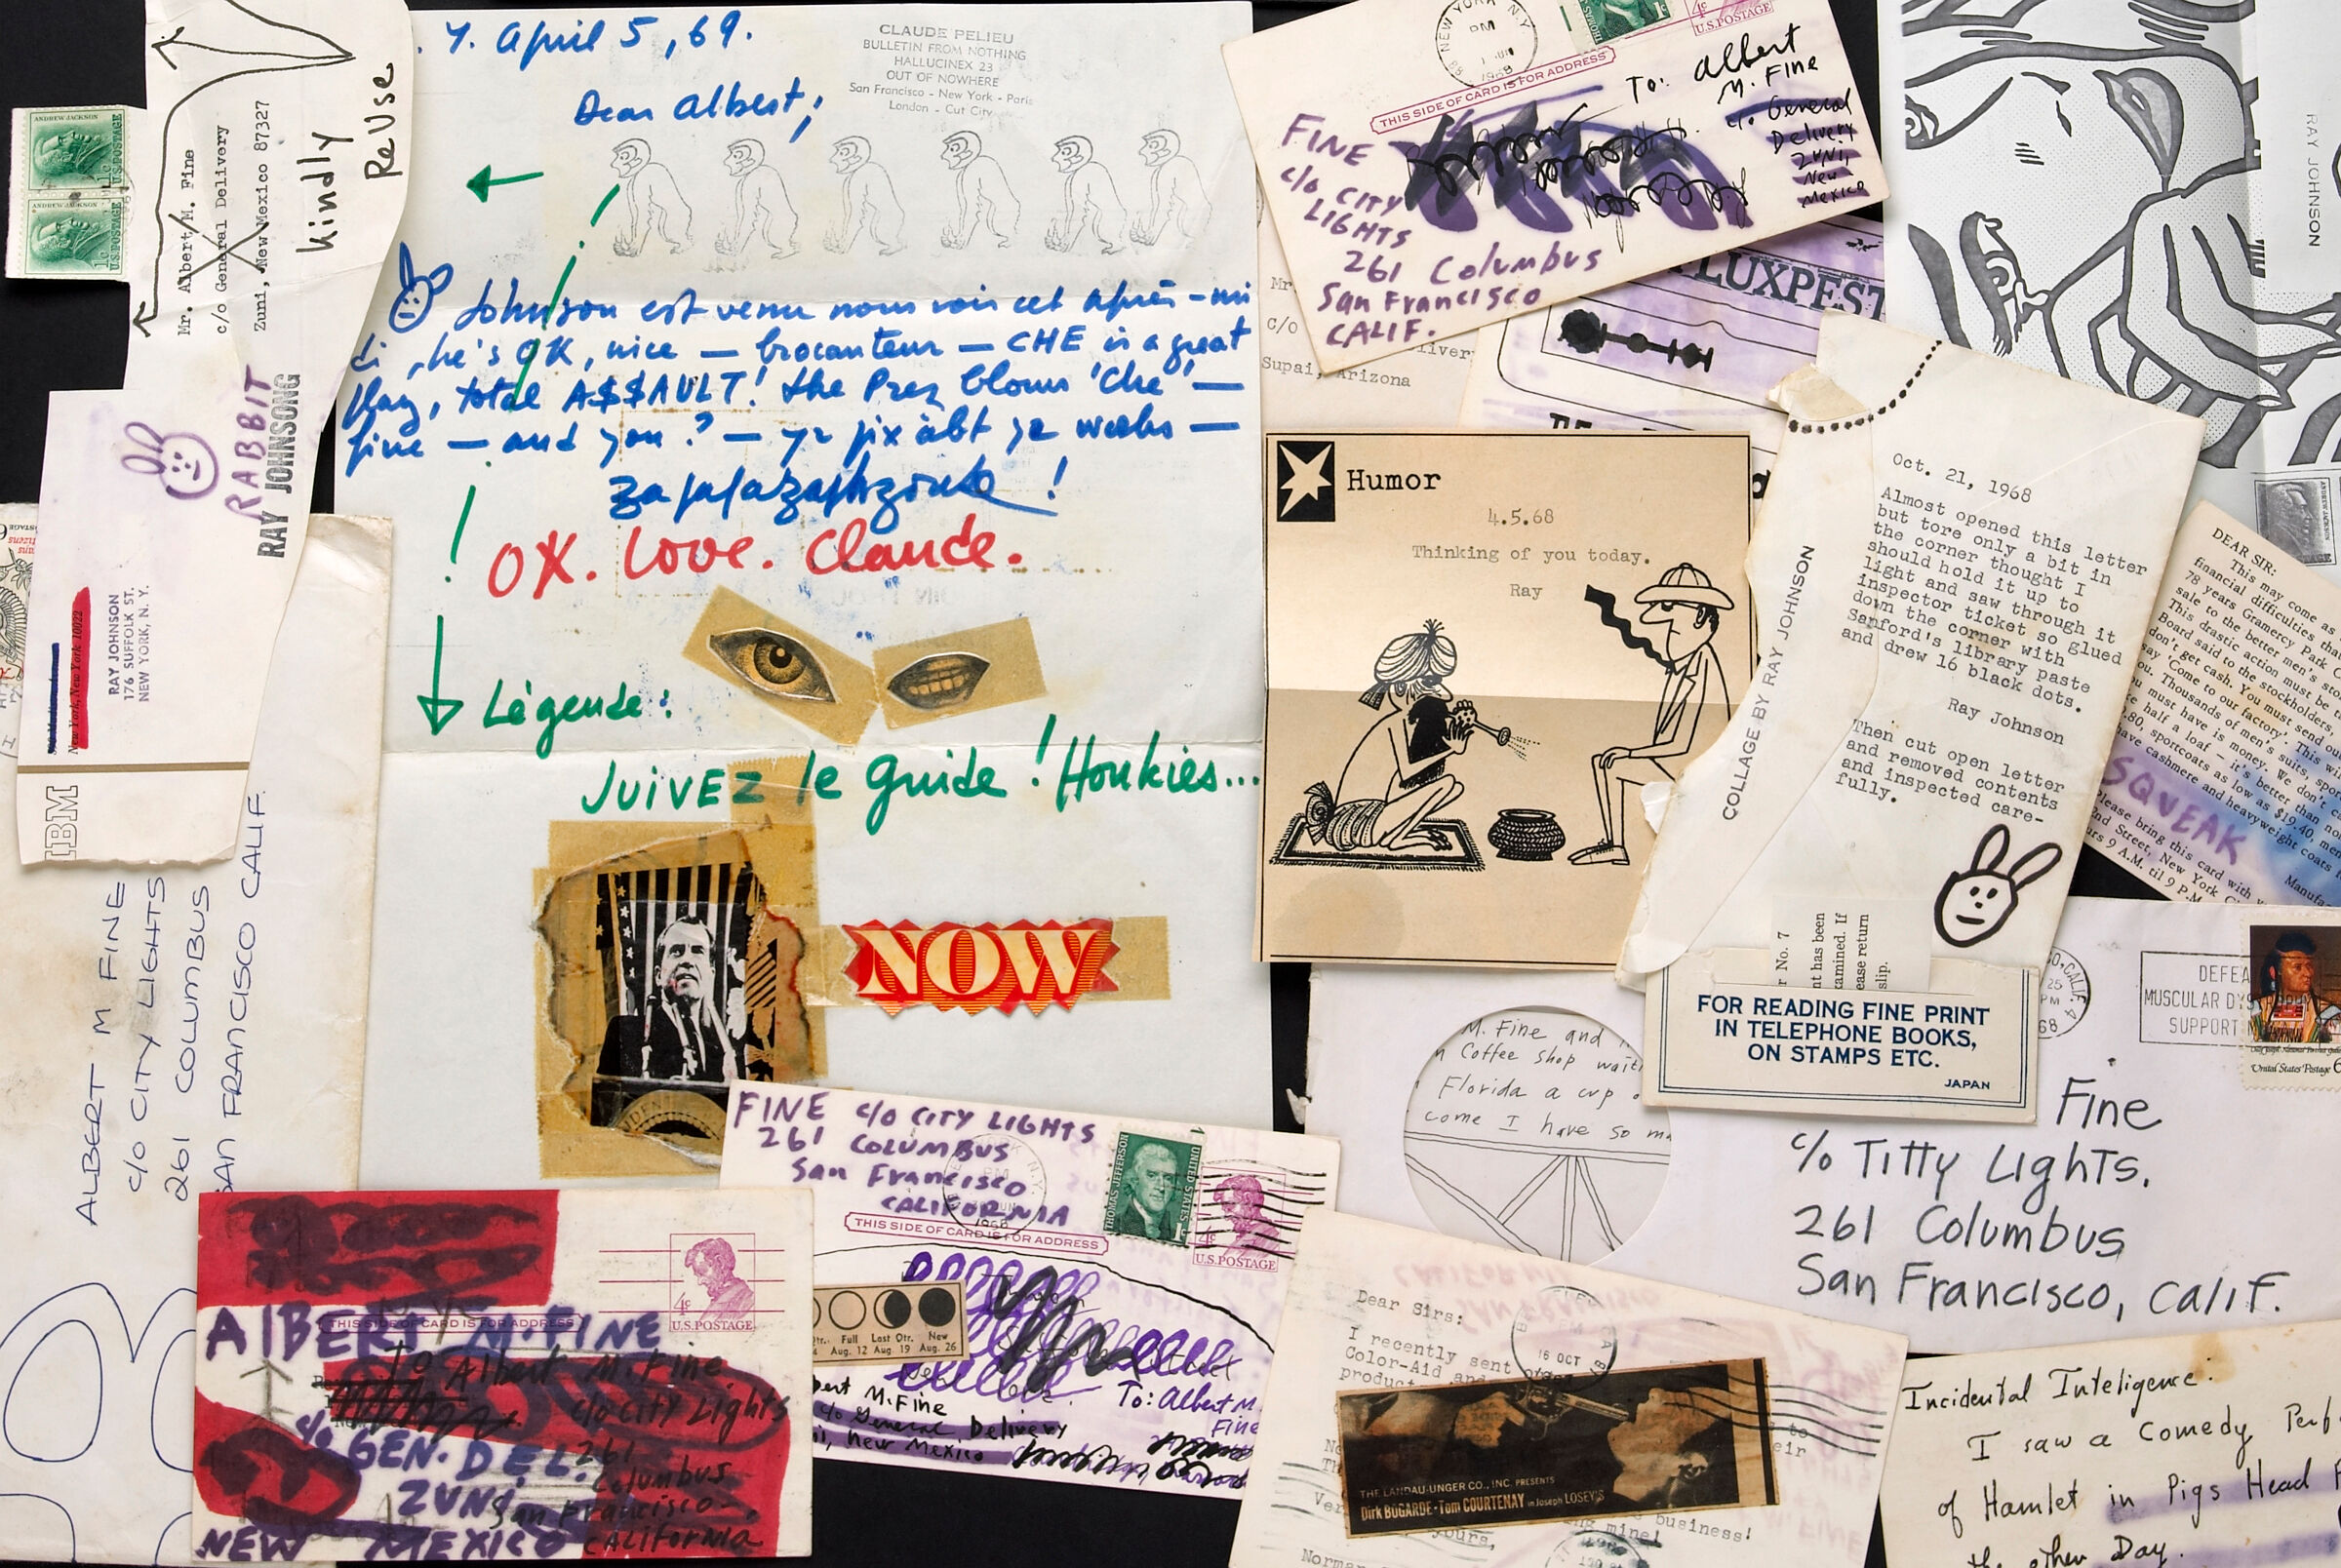 ANDREW JACKSON
1c U.S. POSTAGE
ANDREW JACKSON
1c U.S. POSTAGE
Mr. Albert M. Fine
c/o General Delivery
Zuni, New Mexico 87327
kindly
ReUse
RABBIT
RAY JOHNSONG
New York, New York 10022
RAY JOHNSON
176 SUFFOLK ST.
NEW YORK, N. Y.
IBM
ALBERT M FINE
c/o CITY LIGHTS
261 COLUMBUS
SAN FRANCISCO CALIF.
. Y. April 5, 69.
CLAUDE PELIEU
BULLETIN FROM NOTHING
HALLUCINEX 23
OUT OF NOWHERE
San Francisco - New York - Paris
London - Cut City
Dear Albert;
Johnson est venu nous voir cet après-mi
di, he's OK, nice — brocanteur — CHE is a great
Play, total A$$AULT! the Prez blows 'Che' —
fine — and you? — yr pix abt yr works —
OK. Love. Claude.
Légende:
Suivez le guide! Honkies...
NOW
NEW YORK, N.Y.
PM
1968
1c
4c
U.S. POSTAGE
THIS SIDE OF CARD IS FOR ADDRESS
To: Albert
M. Fine
c/o General
Delivery
Zuni,
New
Mexico
FINE
c/o CITY
LIGHTS
261 Columbus
San Francisco
CALIF.
Mr
c/o
Supai, Arizona
FLUXPEST
RAY JOHNSON
Humor
4.5.68
Thinking of you today.
Ray
COLLAGE BY RAY JOHNSON
Oct. 21, 1968
Almost opened this letter
but tore only a bit in
the corner thought I
should hold it up to
light and saw through it
inspector ticket so glued
down the corner with
Sanford's library paste
and drew 16 black dots.
Ray Johnson
Then cut open letter
and removed contents
and inspected care-
fully.
r No. 7
nt has been
xamined. If
ease return
slip.
FOR READING FINE PRINT
IN TELEPHONE BOOKS,
ON STAMPS ETC.
JAPAN
DEAR SIR:
This may come as
financial difficulties that
78 years Gramercy Park C
sale to the better men's sto
This drastic action must be t
Board said to the stockholders,
don't get cash. You must send ou
say 'Come to our factory'. This wil
ou. Thousands of men's suits, spor
u must have is money. We don't c
e half a loaf — it's better than no
.80, sportcoats as low as $19.40, men
ave cashmere and heavyweight coats f
SQUEAK
lease bring this card with
nd Street, New York
urs 9 A.M. til 9 P.M.
Manufa
CALIF.
25
PM
68
DEFEA
MUSCULAR DYS
SUPPORT
United States Postage 6
Fine
c/o Titty Lights.
261 Columbus
San Francisco, Calif.
M. Fine and
n Coffee shop waiti
Florida a cup
come I have so m
FINE c/o CITY LIGHTS
261 COLUMBUS
San Francisco
CALIFORNIA
1968
THOMAS JEFFERSON
UNITED STATES
1c
4c
U.S. POSTAGE
THIS SIDE OF CARD IS FOR ADDRESS
Qtr. Full Last Qtr. New
4 Aug. 12 Aug. 19 Aug. 26
bert M. Fine
c/o General Delivery
ni, New Mexico
To: Albert M.
Fine
4c
U.S. POSTAGE
THIS SIDE OF CARD IS FOR ADDRESS
ALBERT M. FINE
To Albert M. Fine
c/o City Lights
c/o GEN. DEL.
261
Columbus
ZUNI
San Francisco
NEW MEXICO
California
Dear Sirs:
I recently sent
Color-Aid and
product
16 OCT
to
eir
THE LANDAU-UNGER CO., INC. PRESENTS
Dirk BOGARDE · Tom COURTENAY in Joseph LOSEY'S
business!
ng mine!
yours,
Norma
Incidental Inteligence:
I saw a Comedy Perf
of Hamlet in Pigs Head
the other Day.